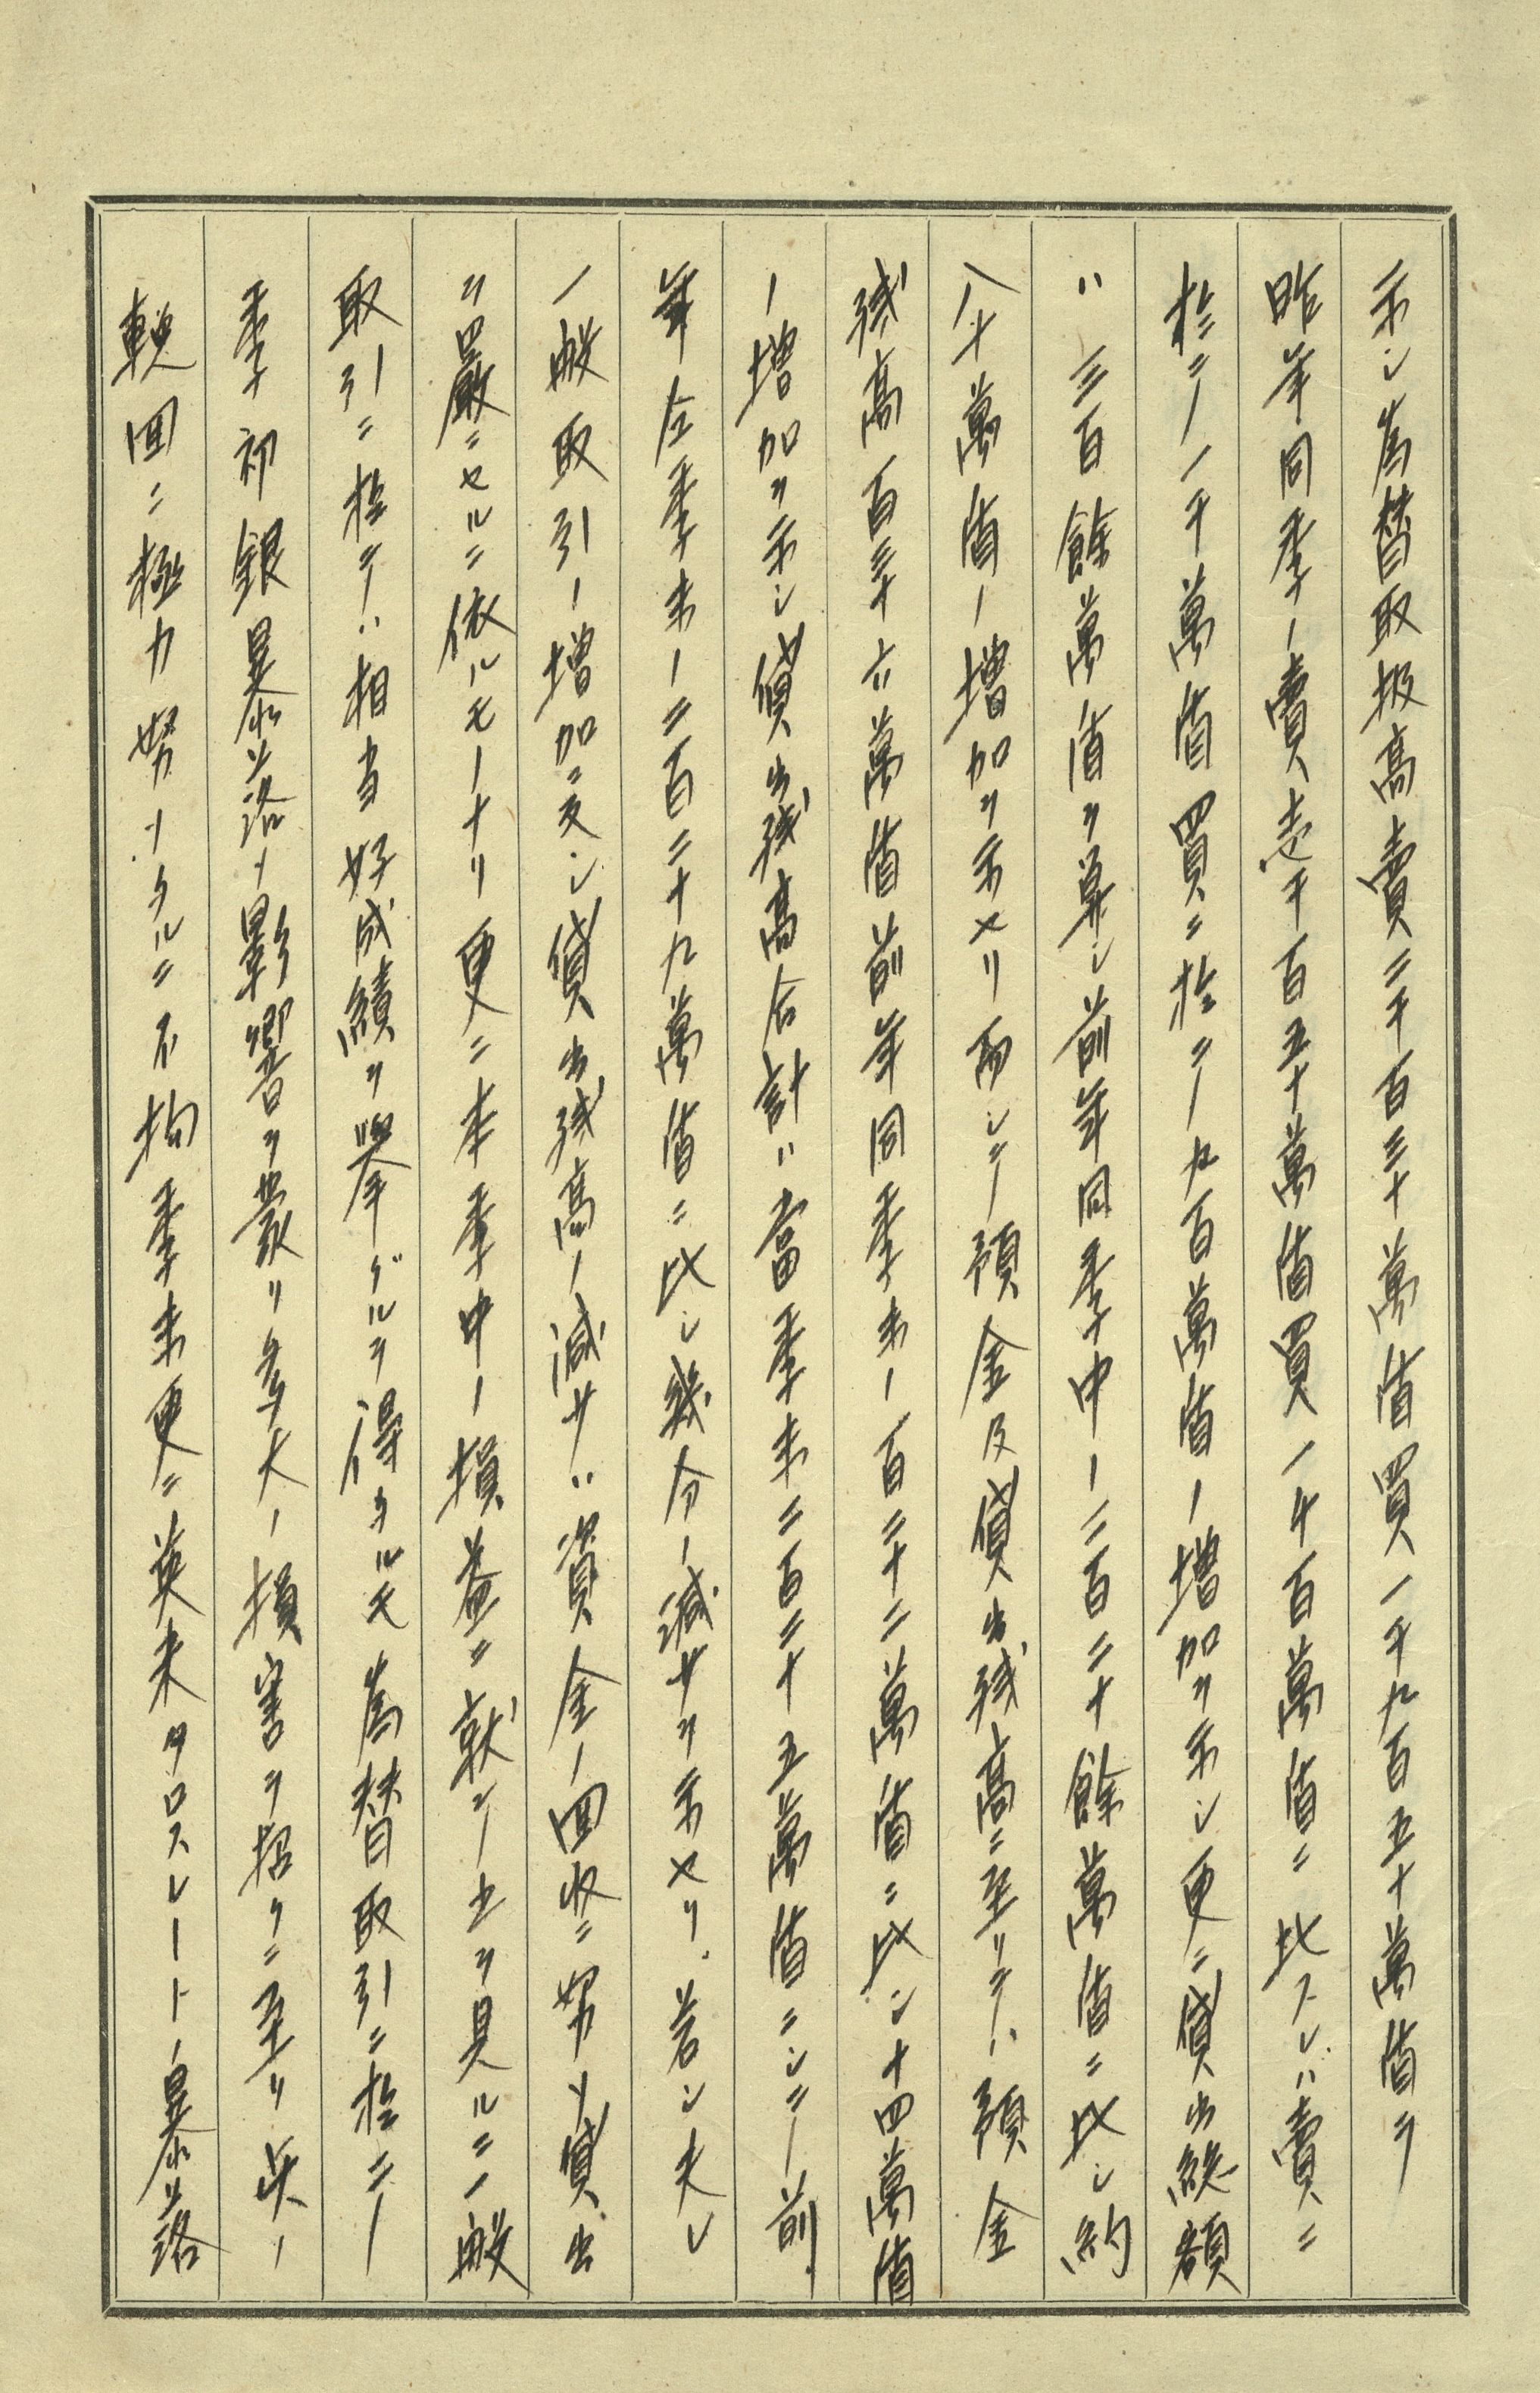 示シ為替取扱高賣二千百三十萬盾買一千九百五十萬盾ヲ
昨年同季ノ賣壱千百五十萬盾買一千百萬盾ニ比スレバ賣ニ
於テ一千萬盾買ニ於テ九百萬盾ノ増加ヲ示シ更ニ貸出総額
ハ三百餘萬盾ヲ算シ前年同季中ノ二百二十餘萬盾ニ比シ約
八十萬盾ノ増加ヲ示セリ而シテ預金及貸出残高ニ至リテハ預金
残高百三十六萬盾前年同季末ノ百二十二萬盾ニ比シ十四萬盾
ノ増加ヲ示シ貸出残高合計ハ當季末二百二十五萬盾ニシテ前
年仝季末ノ二百二十九萬盾ニ比シ幾分ノ減少ヲ示セリ、若シ夫レ
一般取引ノ増加ニ反シ貸出残高ノ減少ハ資金ノ回収ニ努メ貸出
ヲ嚴ニセルニ依ルモノナリ更ニ本季中ノ損益ニ就テ之ヲ見ルニ一般
取引ニ於テハ相当好成績ヲ擧グルヲ得タルモ為替取引ニ於テ
季初銀暴落ノ影響ヲ蒙リ多大ノ損害ヲ招クニ至リ失ノ
輓回ニ極力努メタルニ不拘季末更ニ英米クロスレートノ暴落